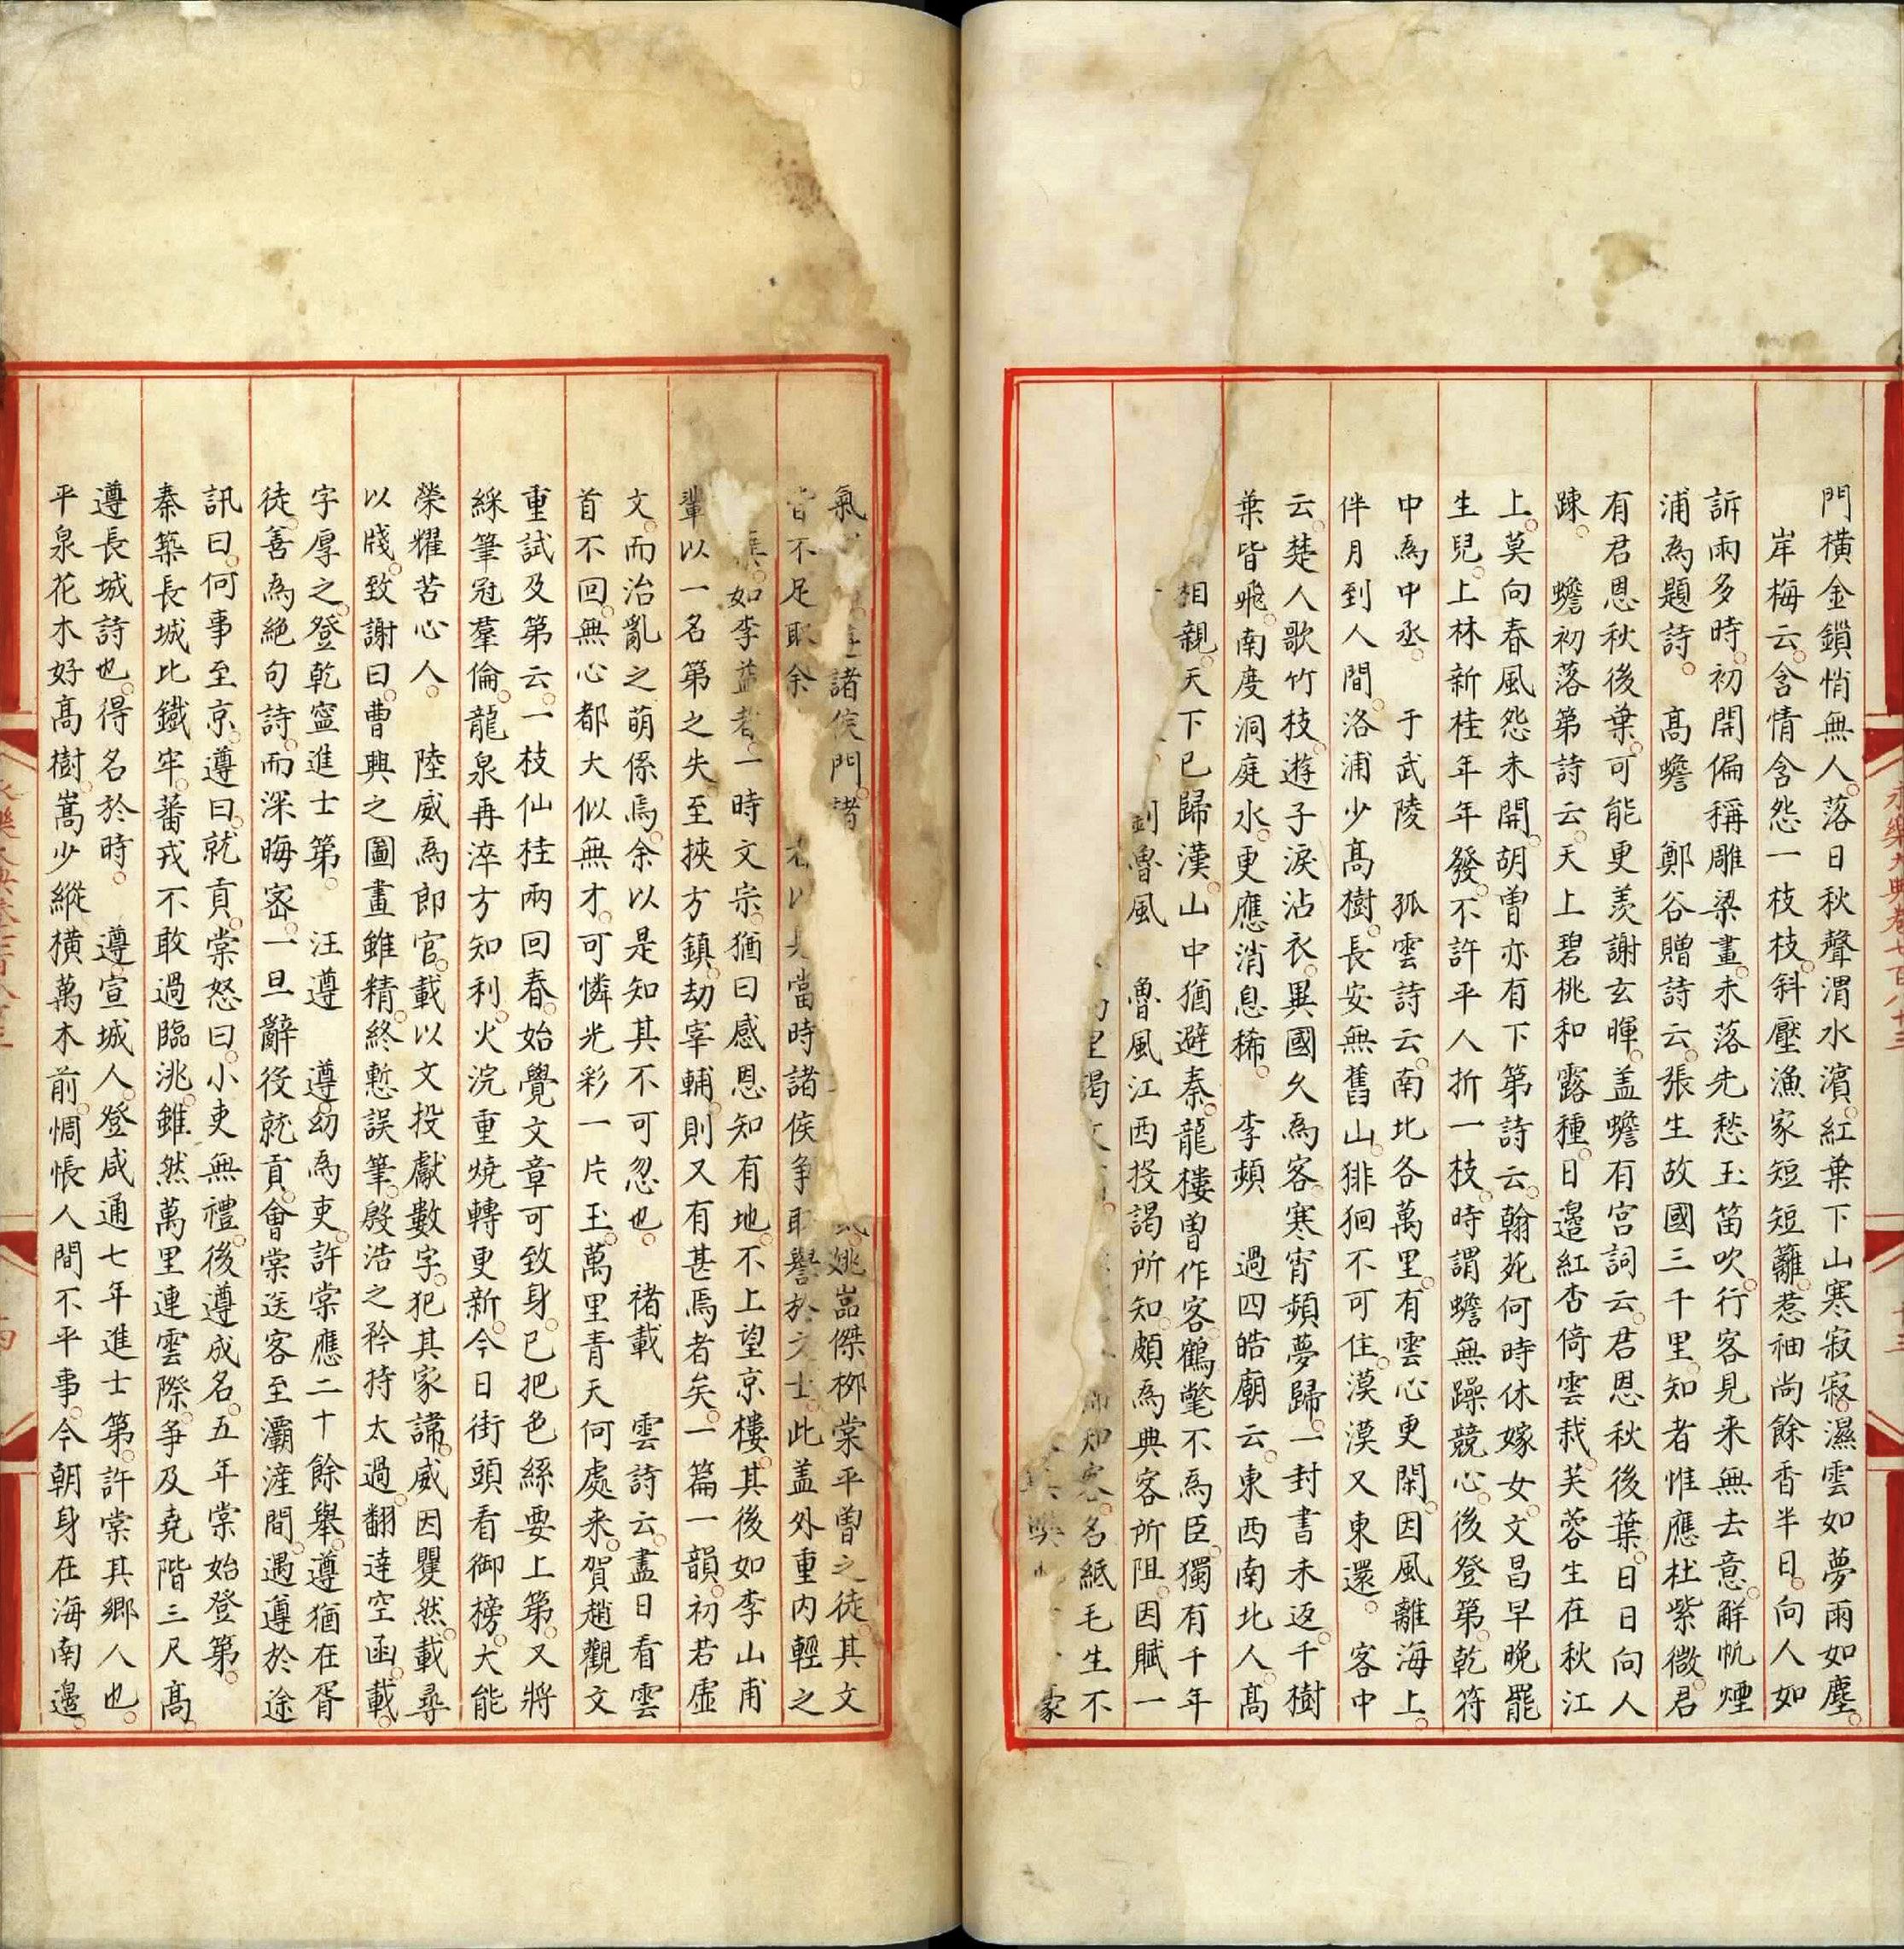 門橫金鎖悄無人落日秋聲渭水濱紅葉下山寒寂寂濕雲如夢雨如塵
岸梅云含情含怨一枝枝斜壓漁家短短籬惹袖尚餘香半日向人如
訴雨多時初開偏稱雕梁畫未落先愁玉笛吹行客見来無去意解帆煙
浦為題詩　髙蟾　鄭谷贈詩云張生故國三千里知者惟應杜紫微君
有君恩秋後葉可能更羨謝玄暉盖蟾有宮詞云君恩秋後葉日日向人
踈　蟾初落第詩云天上碧桃和露種日邉紅杏倚雲栽芙蓉生在秋江
上莫向春風怨未開胡曽亦有下第詩云翰苑何時休嫁女文昌早晚罷
生兒上林新桂年年發不許平人折一枝時謂蟾無躁競心後登第乾符
中為中丞　于武陵　孤雲詩云南北各萬里有雲心更閑因風離海上
伴月到人間洛浦少髙樹長安無舊山徘徊不可住漠漠又東還　客中
云楚人歌竹枝遊子淚沾衣異國久為客寒宵頻夢歸一封書未返千樹
葉皆飛南度洞庭水更應消息稀　李頻　過四皓廟云東西南北人髙
相親天下已歸漢山中猶避秦龍樓曽作客鶴氅不為臣獨有千年
魯風　魯風江西投謁所知頗為典客所阻因賦一
里謁文　知客名紙毛生不
豪
氣　諸侯門　姚嵓傑栁棠平曽之徒其文
皆不足取余　當時諸侯争取譽於文士此盖外重内輕之
如李益者一時文宗猶曰感恩知有地不上望京樓其後如李山甫
輩以一名第之失至挾方鎮劫宰輔則又有甚焉者矣一篇一韻初若虚
文而治亂之萌係焉余以是知其不可忽也　褚載　雲詩云盡日看雲
首不回無心都大似無才可憐光彩一片玉萬里青天何處来賀趙觀文
重試及第云一枝仙桂兩回春始覺文章可致身已把色絲要上第又將
綵筆冠羣倫龍泉再淬方知利火浣重燒轉更新今日街頭看御榜大能
榮耀苦心人　陸威為郎官載以文投獻數字犯其家諱威因矍然載尋
以牋致謝曰曹興之圖畫雖精終慙誤筆殷浩之矜持太過翻達空函載
字厚之登乾寧進士第　汪遵　遵幼為吏許棠應二十餘舉遵猶在胥
徒善為絶句詩而深晦宻一旦辭役就貢會棠送客至灞滻間遇遵於途
訊曰何事至京遵曰就貢棠怒曰小吏無禮後遵成名五年棠始登第
秦築長城比鐵牢蕃戎不敢過臨洮雖然萬里連雲際爭及堯階三尺髙
遵長城詩也得名於時　遵宣城人登咸通七年進士第許棠其鄉人也
平泉花木好髙樹嵩少縱橫萬木前惆悵人間不平事今朝身在海南邉